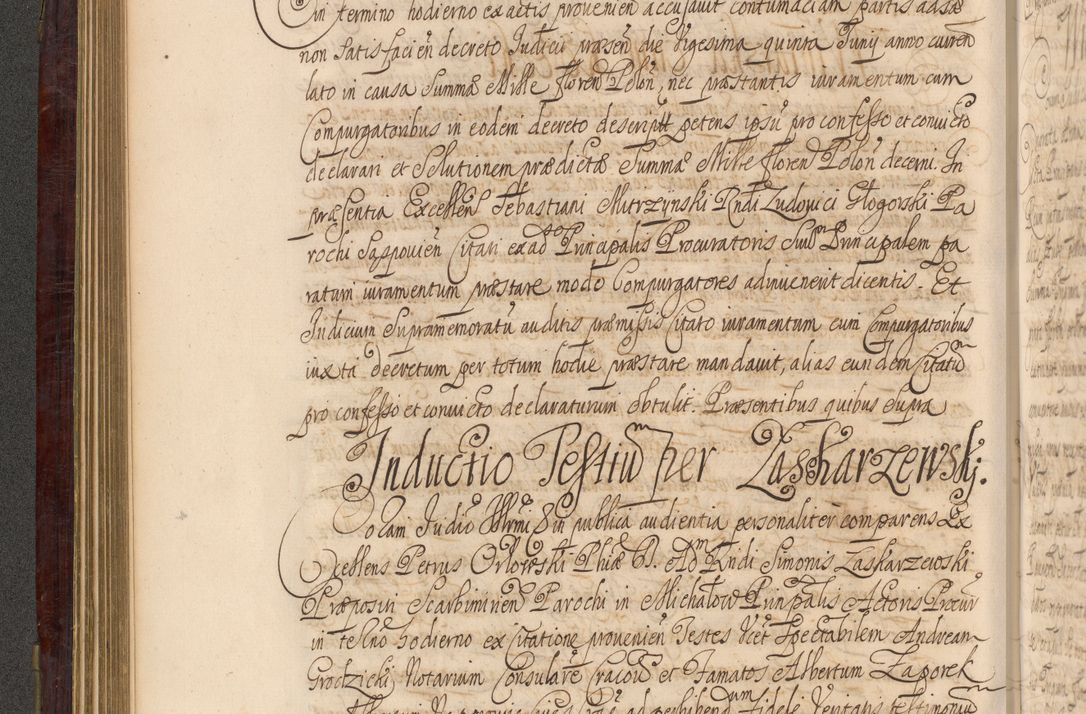 in termino hodierno ex actis provenien̄ accusavit contumaciam partis adsæ
non satisfacien̄ decreto Judicii præsen̄ die Vigesima quinta Junij anno curren̄
lato in causa Summæ Mille floren̄ Polon̄, nec præstantis iuramentum cum
Compurgatoribus in eodem decreto descriptt petens ipsū pro confesso et convicto
declarari et Solutionem prædictæ Summæ Mille floren̄ Polon̄ decerni. In
præsentia Excellen̄ Sebastiani Mutrzynski Rndi Ludovici Głogorski Pa
rochi Saspovien̄ Citati ex adō Principalis Procuratoris Suūm Principalem pa
ratum iuramentum præstare modo Compurgatores adinvenerit dicentis. Et
Judicium Supramemoratū auditis præmissis Citato iuramentum cum Compurgatoribus
iuxta decretum per totum hodie præstare mandavit, alias eundem Citatum
pro confesso et convicto declaraturum obtulit. Præsentibus quibus Supra
Inductio Testium per Zaskarzewskj.
Coram Judio in publica audientia personaliter comparens Ex
cellens Petrus Orłowski Phiæ B. Adm Rndi Simonis Zaskarzewski
Præpositi Scarbimirien̄ Parochi in Michałow Prinpalis Actoris Procur
in termno hodierno ex citatione provenien̄ Testes Vcet Spectabilem Andream
Grodzicki Notarium Consularē Cracov̄ et Famatos Albertum Zaporek
ad perhibend um fidele Veritatis testimonium